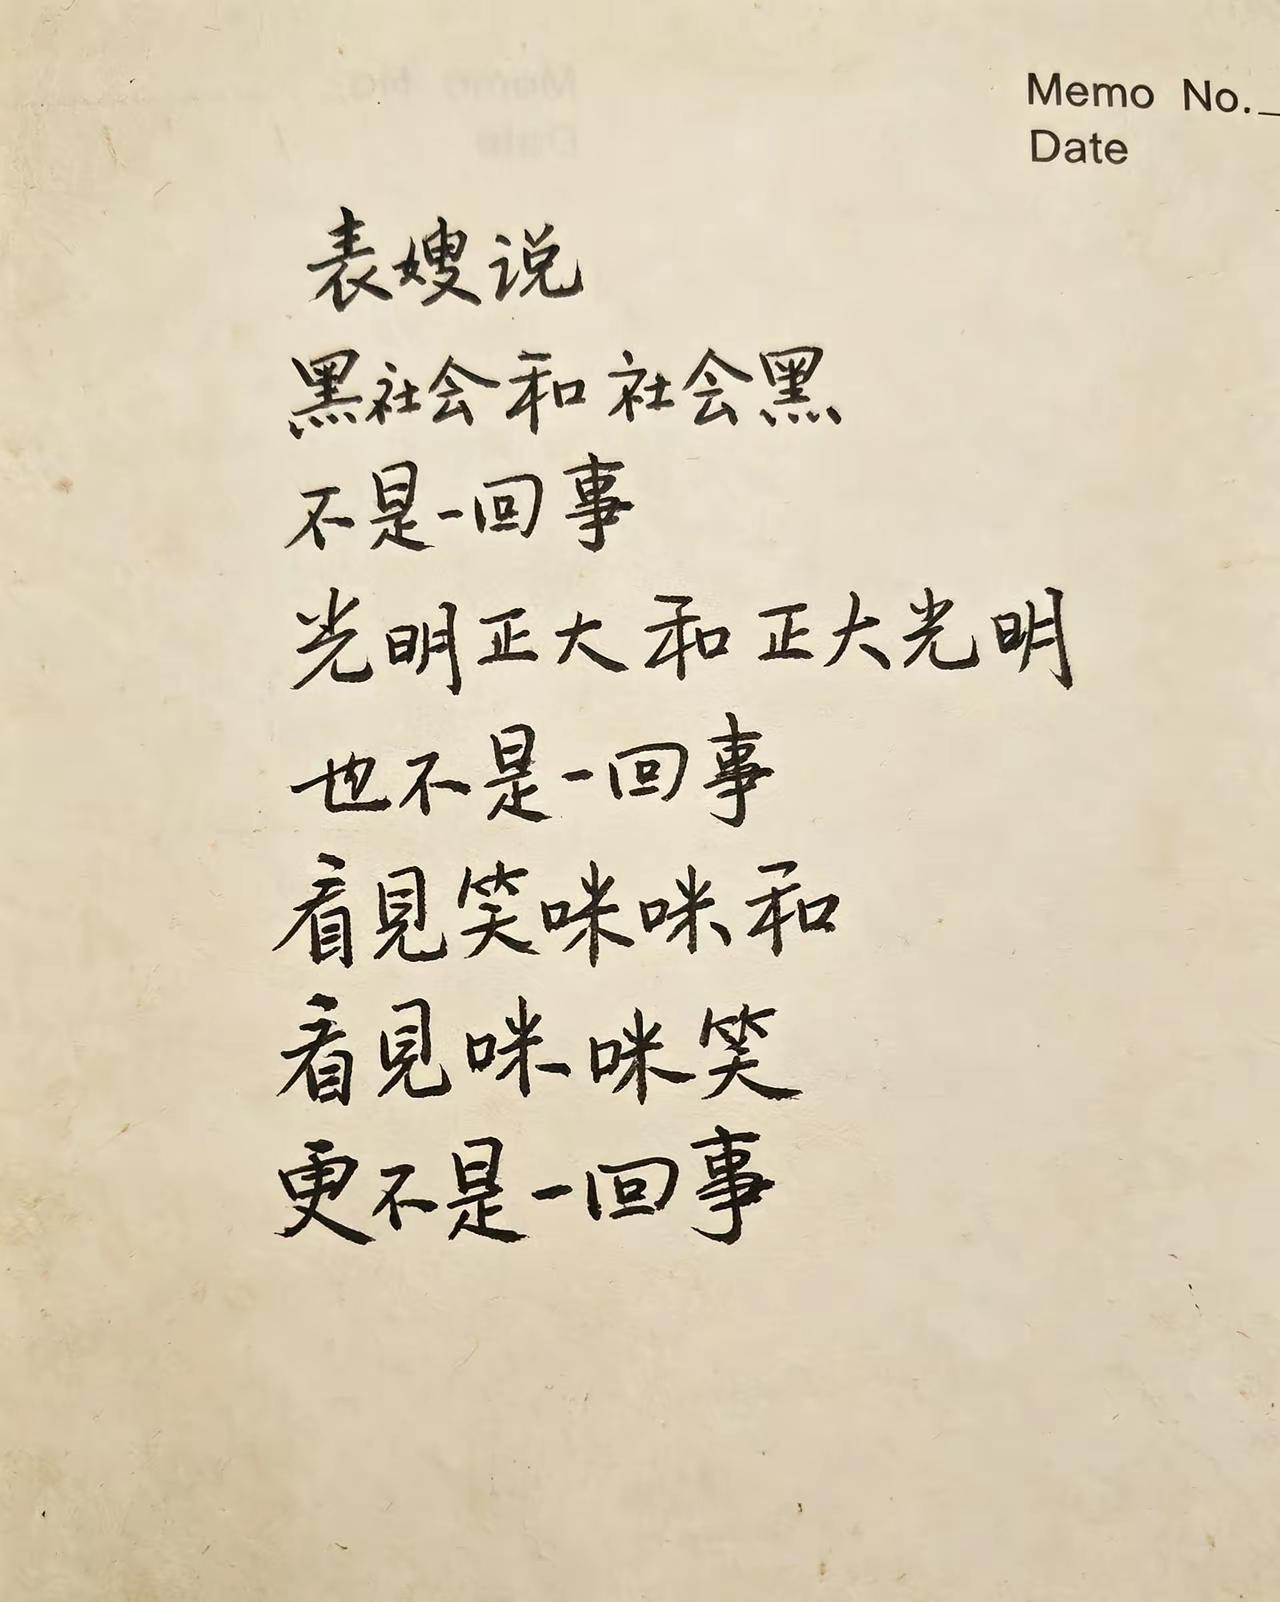 Memo No.
Date
表嫂说
黑社会和社会黑
不是一回事
光明正大和正大光明
也不是一回事
看見笑咪咪和
看見咪咪笑
更不是一回事